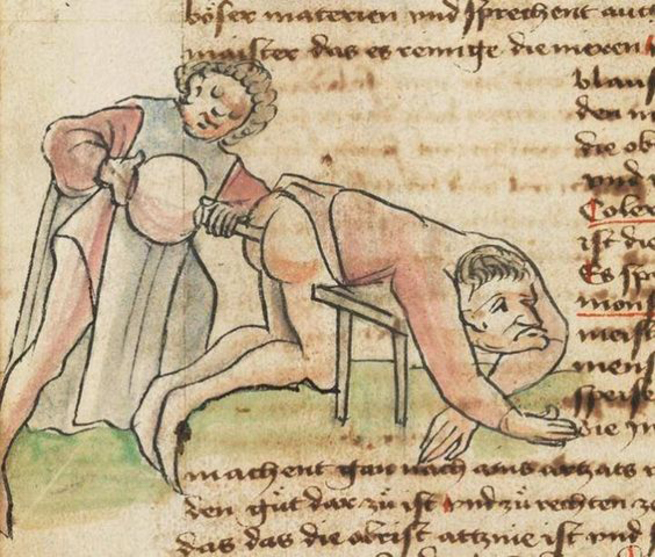 böser materien vnd sprechent auch
maister das es rennige die meren
blaus
den
die ob
vnd
Coler
ist die
Es spr
mons
meist
mens
speise
die
machent gan nach ains artzats
den gůt dar zů ist vnd zů rechten
das das die obrist artznie ist vnd